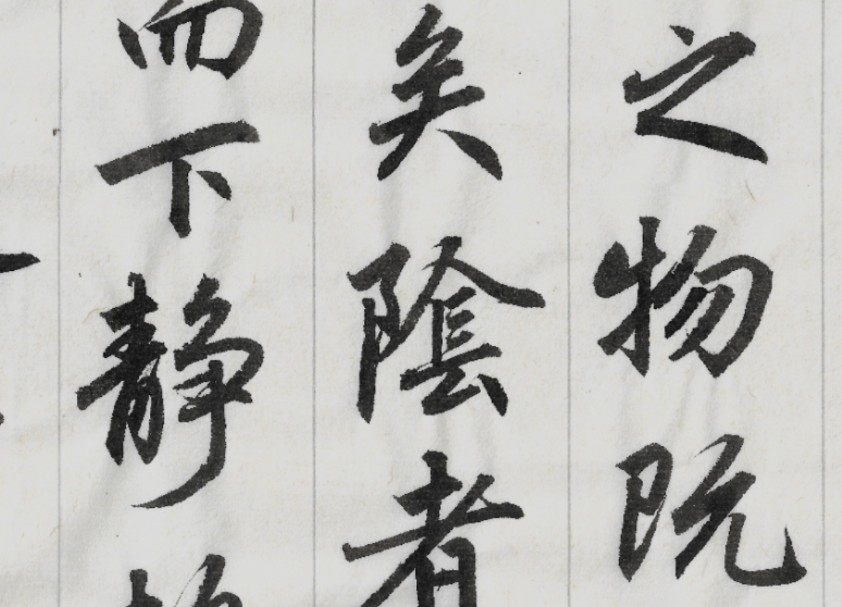 之物既
矣陰者
而下静